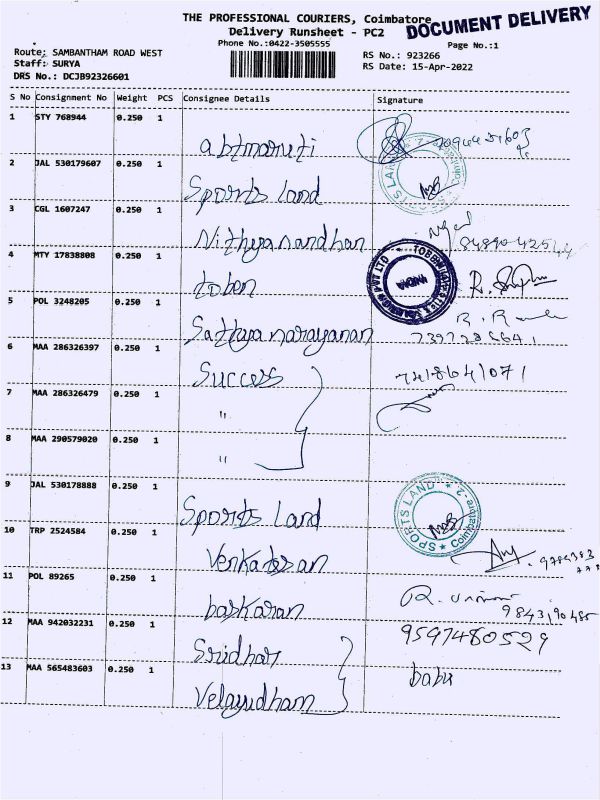 THE PROFESSIONAL COURIERS, Coimbatore
DOCUMENT DELIVERY
Delivery Runsheet - PC2
Phone No.:0422-3505555
Page No.:1
Route: SAMBANTHAM ROAD WEST
RS No.: 923266
Staff: SURYA
RS Date: 15-Apr-2022
DRS No.: DCJB92326601
S No Consignment No Weight PCS Consignee Details Signature
1 STY 768944 0.250 1
abtmaruti
2 JAL 530179607 0.250 1
Sports land
3 CGL 1607247 0.250 1
Nithyanandhan
4 MTY 17838808 0.250 1
toben
5 POL 3248205 0.250 1
Sathyanarayanan
6 MAA 286326397 0.250 1
Success 7418641071
7 MAA 286326479 0.250 1
"
8 MAA 290579020 0.250 1
"
9 JAL 530178888 0.250 1
Sports Land SPORTS LAND
10 TRP 2524584 0.250 1
Venkatesan
11 POL 89265 0.250 1
baskaran 9843190485
12 MAA 942032231 0.250 1 9597480529
Sridhar
13 MAA 565483603 0.250 1 babu
Velayudham